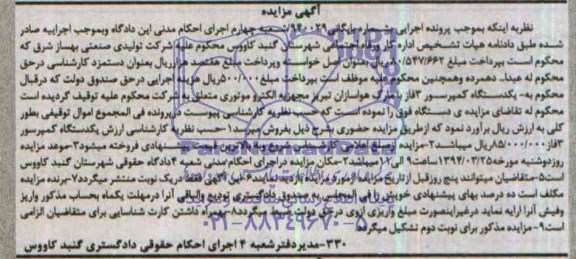 آگهی مزایده
نظر به اینکه بموجب پرونده اجرایی بشماره بایگانی 940029 شعبه چهارم اجرای احکام مدنی این دادگاه وبموجب اجراییه صادر
شده طبق دادنامه هیات تشخیص اداره کار ورفاه اجتماعی شهرستان گنبد کاووس محکوم علیه شرکت تولیدی صنعتی بهساز شرق که
محکوم است بپرداخت مبلغ 80/547/662 ریال بعنوان اصل خواسته وپرداخت مبلغ هفتصد هزار ریال بعنوان دستمزد کارشناسی درحق
محکوم له عبدا... دهمرده وهمچنین محکوم علیه موظف است بپرداخت مبلغ 500/000 ریال هزینه اجرایی درحق صندوق دولت که درقبال
محکوم به- یکدستگاه کمپرسور 3فاز بمارک هواسازان تبریز مجهز به الکترو موتوری متعلق به شرکت محکوم علیه توقیف گردیده است
محکوم له تقاضای مزایده ی دستگاه فوق را نموده است که حسب نظریه کارشناسی پیوست درپرونده فی المجموع اموال توقیفی بطور
کلی به ارزش ریال برآورد نمود که ازطریق مزایده حضوری بشرح ذیل بفروش میرسد 1-حسب نظریه کارشناسی ارزش یکدستگاه کمپرسور
3فاز 85/000/000ریال میباشد 2-مزایده ازمبلغ اعلامی کارشناسی شروع وبه بالاترین قیمت پیشنهادی فروخته میشود 3-موعد مزایده
روز دوشنبه مورخه 1394/03/25 ساعت 9 الی 11 میباشد 4-مکان مزایده دراجرای احکام مدنی شعبه 4 دادگاه حقوقی شهرستان گنبد کاووس
است 5-متقاضیان میتوانند پنج روز قبل ازتاریخ مزایده ازمورد مزایده بازدید نمایند 6-این آگهی فقط دریک نوبت منتشر میگردد 7-برنده مزایده
مکلف است ده درصد بهای پیشنهادی خویش را فی المجلس به صندوق دادگستری تودیع والباقی آنرا درمهلت یکماه بحساب مذکور واریز
وفیش آنرا ارایه نماید درغیراینصورت مبلغ واریزی ازوی درحق دولت ضبط میگردد 8-همراه داشتن کارت شناسایی برای متقاضیان الزامی
است 9-مزایده مذکور برای نوبت دوم تشکیل میگردد
330-مدیر دفتر شعبه 4 اجرای احکام حقوقی دادگستری گنبد کاووس
021-88349670-5